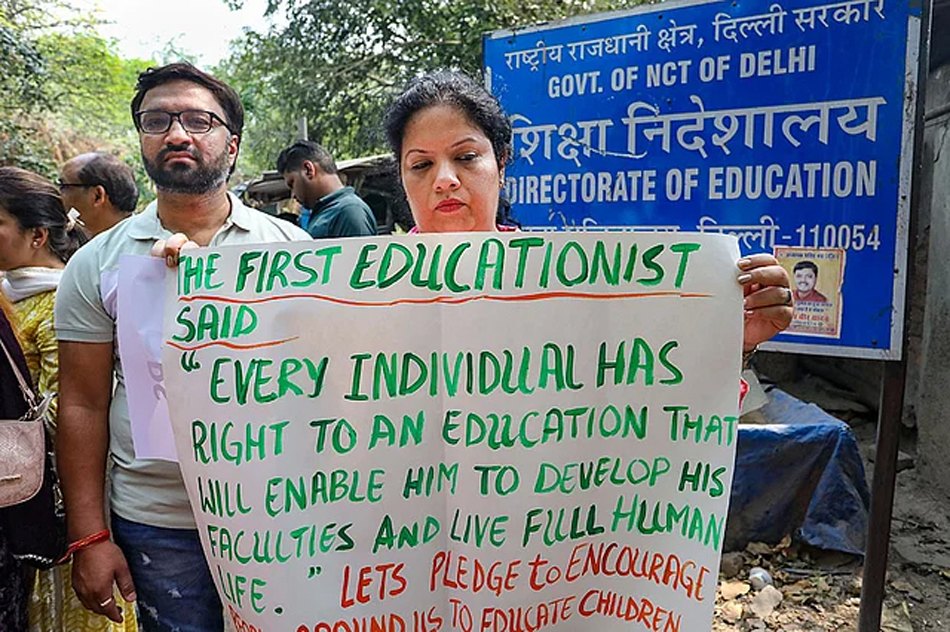 राष्ट्रीय राजधानी क्षेत्र, दिल्ली सरकार
GOVT. OF NCT OF DELHI
शिक्षा निदेशालय
DIRECTORATE OF EDUCATION
दिल्ली -110054
THE FIRST EDUCATIONIST
SAID
"EVERY INDIVIDUAL HAS
RIGHT TO AN EDUCATION THAT
WILL ENABLE HIM TO DEVELOP HIS
FACULTIES AND LIVE FULL HUMAN
LIFE." LETS PLEDGE to ENCOURAGE
AROUND US TO EDUCATE CHILDREN